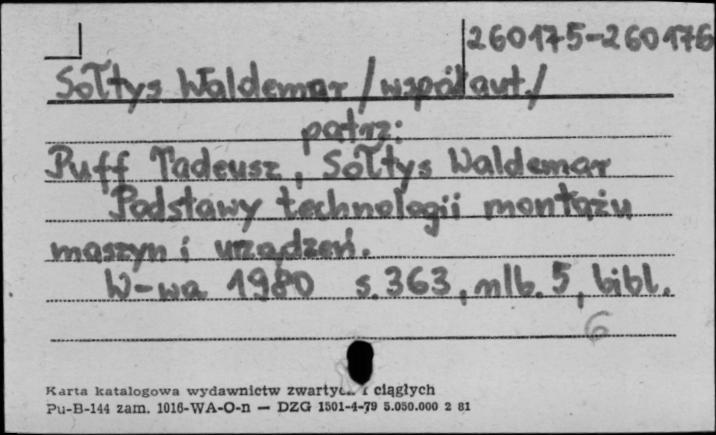 260175-260176
Sołtys Waldemar /współaut./
patrz:
Puff Tadeusz, Sołtys Waldemar
Podstawy technologii montażu
maszyn i urządzeń.
W-wa 1980 s. 363, nlb. 5, bibl.
6
Karta katalogowa wydawnictw zwartych i ciągłych
Pu-B-144 zam. 1016-WA-O-n — DZG 1501-4-79 5.050.000 2 81